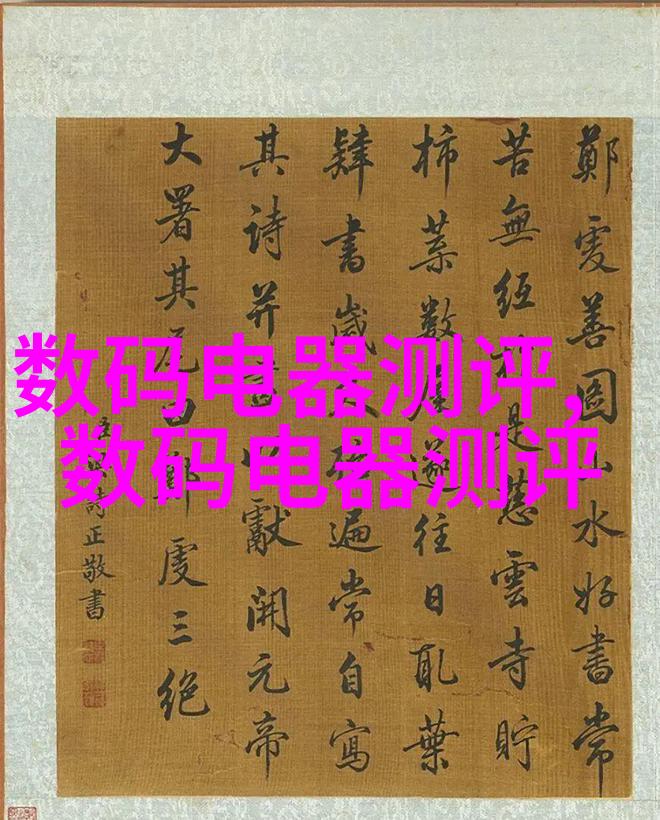 数码电器测评,
数码电器测评
鄭虔善圖山水好書常
苦無紙於是慈雲寺貯
柿葉數屋遂往日取葉
肄書歲久殆遍常自寫
其詩并畫以獻開元帝
大署其尾曰鄭虔三絕
臣梁詩正敬書